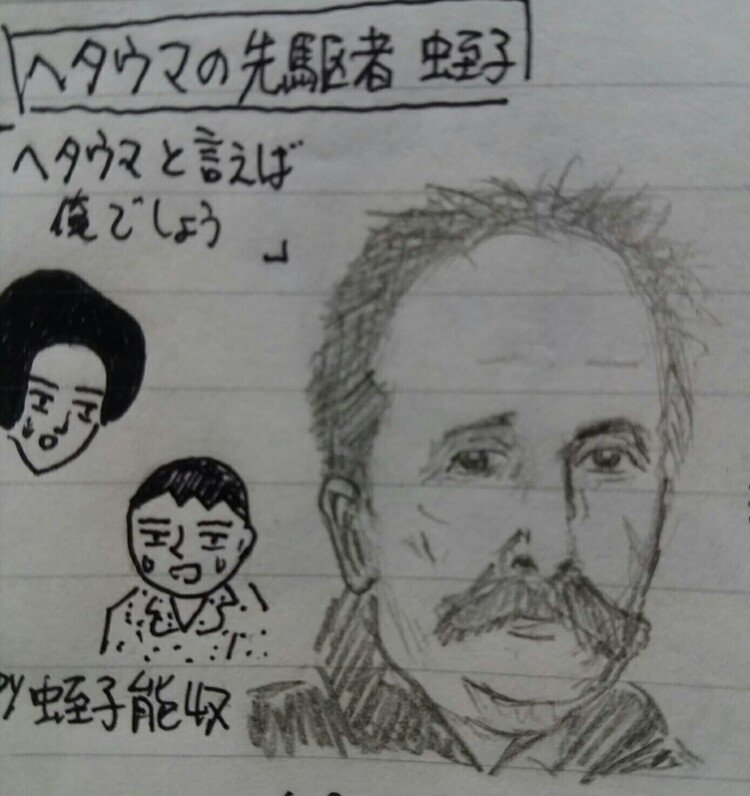 ヘタウマの先駆者 蛭子
ヘタウマと言えば
俺でしょう
」
by 蛭子能収